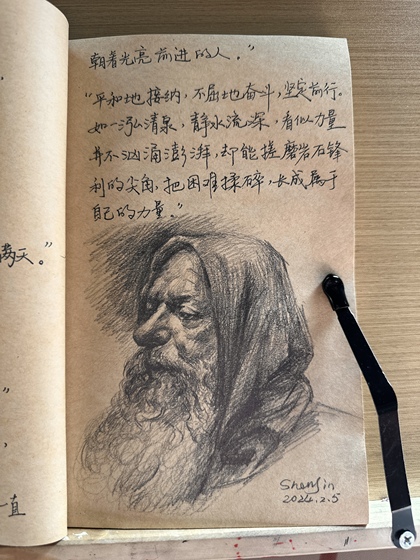 朝着光亮前进的人。”
“平和地接纳，不屈地奋斗，坚定前行。
如一泓清泉，静水流深，看似力量
并不汹涌澎湃，却能搓磨岩石锋
利的尖角，把困难揉碎，长成属于
自己的力量。”
满天。”
”
一直
Shenjin
2024.2.5